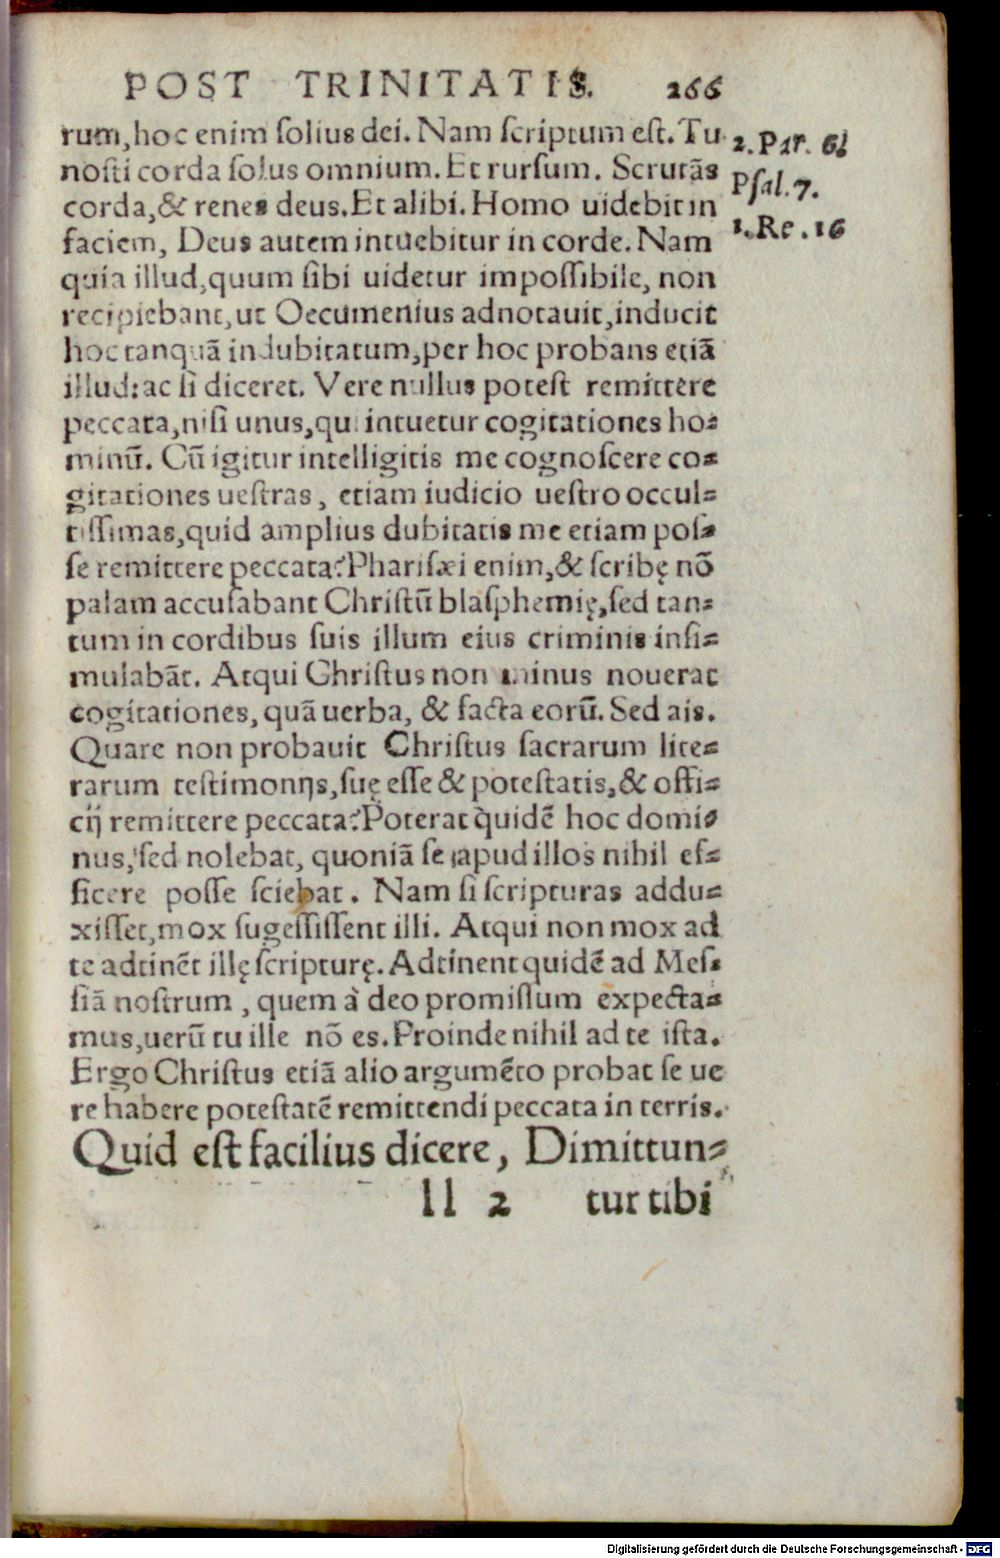 POST TRINITATIS. 266
rum, hoc enim solius dei. Nam scriptum est. Tu
2. Par. 6.
nosti corda solus omnium. Et rursum. Scrutãs
Psal. 7.
corda, & renes deus. Et alibi. Homo uidebit in
1. Re. 16
faciem, Deus autem intuebitur in corde. Nam
quia illud, quum sibi uidetur impossibile, non
recipiebant, ut Oecumenius adnotauit, inducit
hoc tanquã indubitatum, per hoc probans etiã
illud: ac si diceret. Vere nullus potest remittere
peccata, nisi unus, qui intuetur cogitationes ho-
minũ. Cũ igitur intelligitis me cognoscere co-
gitationes uestras, etiam iudicio uestro occul-
tissimas, quid amplius dubitatis me etiam pos-
se remittere peccata? Pharisæi enim, & scribę nõ
palam accusabant Christũ blasphemię, sed tan-
tum in cordibus suis illum eius criminis insi-
mulabãt. Atqui Christus non minus nouerat
cogitationes, quã uerba, & facta eorũ. Sed ais.
Quare non probauit Christus sacrarum lite-
rarum testimonijs, suę esse & potestatis, & offi-
cij remittere peccata? Poterat q̀uidẽ hoc domi-
nus, sed nolebat, quoniã se apud illos nihil ef-
ficere posse sciebat. Nam si scripturas addu-
xisset, mox sugessissent illi. Atqui non mox ad
te adtinẽt illę scripturę. Adtinent quidẽ ad Mes-
siã nostrum, quem à deo promissum expecta-
mus, uerũ tu ille nõ es. Proinde nihil ad te ista.
Ergo Christus etiã alio argumẽto probat se ue
re habere potestatẽ remittendi peccata in terris.
Quid est facilius dicere, Dimittun-
ll 2 tur tibi
Digitalisierung gefördert durch die Deutsche Forschungsgemeinschaft - DFG